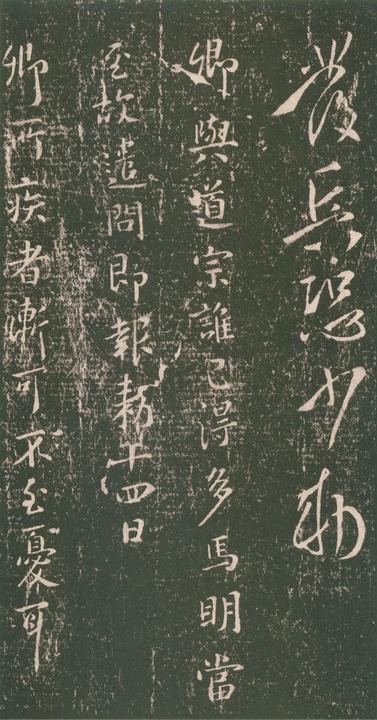 發兵恐少勅
卿與道宗誰已得多馬明當
至故遣問即報勅十四日
卿所疾者漸可不至憂耳